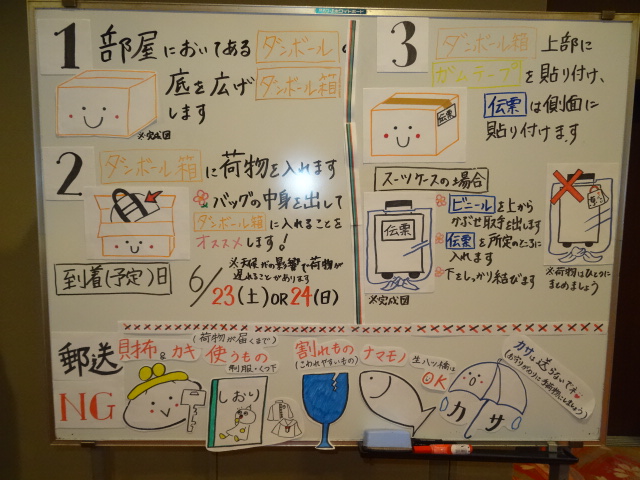 1 部屋においてある ダンボール
底を広げ ダンボール箱
します
※完成図
2 ダンボール箱 に荷物を入れます
バッグの中身を出して
ダンボール箱 に入れることを
オススメします!
到着(予定)日
6/23(土)OR 24(日)
※天候などの影響で荷物が
遅れることがあります
3 ダンボール箱 上部に
ガムテープ を貼り付け、
伝票 は側面に
貼り付けます
伝票
スーツケースの場合
伝票
※完成図
ビニール を上から
かぶせ取手を出します
伝票 を所定のところに
入れます
下をしっかり結びます
※荷物はひとつに
まとめましょう
郵送 NG
(荷物が届くまで)
財布&カギ 使うもの
制服・くつ下
しおり
割れもの
(こわれやすいもの)
ナマモノ
生八ツ橋は
OK
カサ
カサは送らないでネ